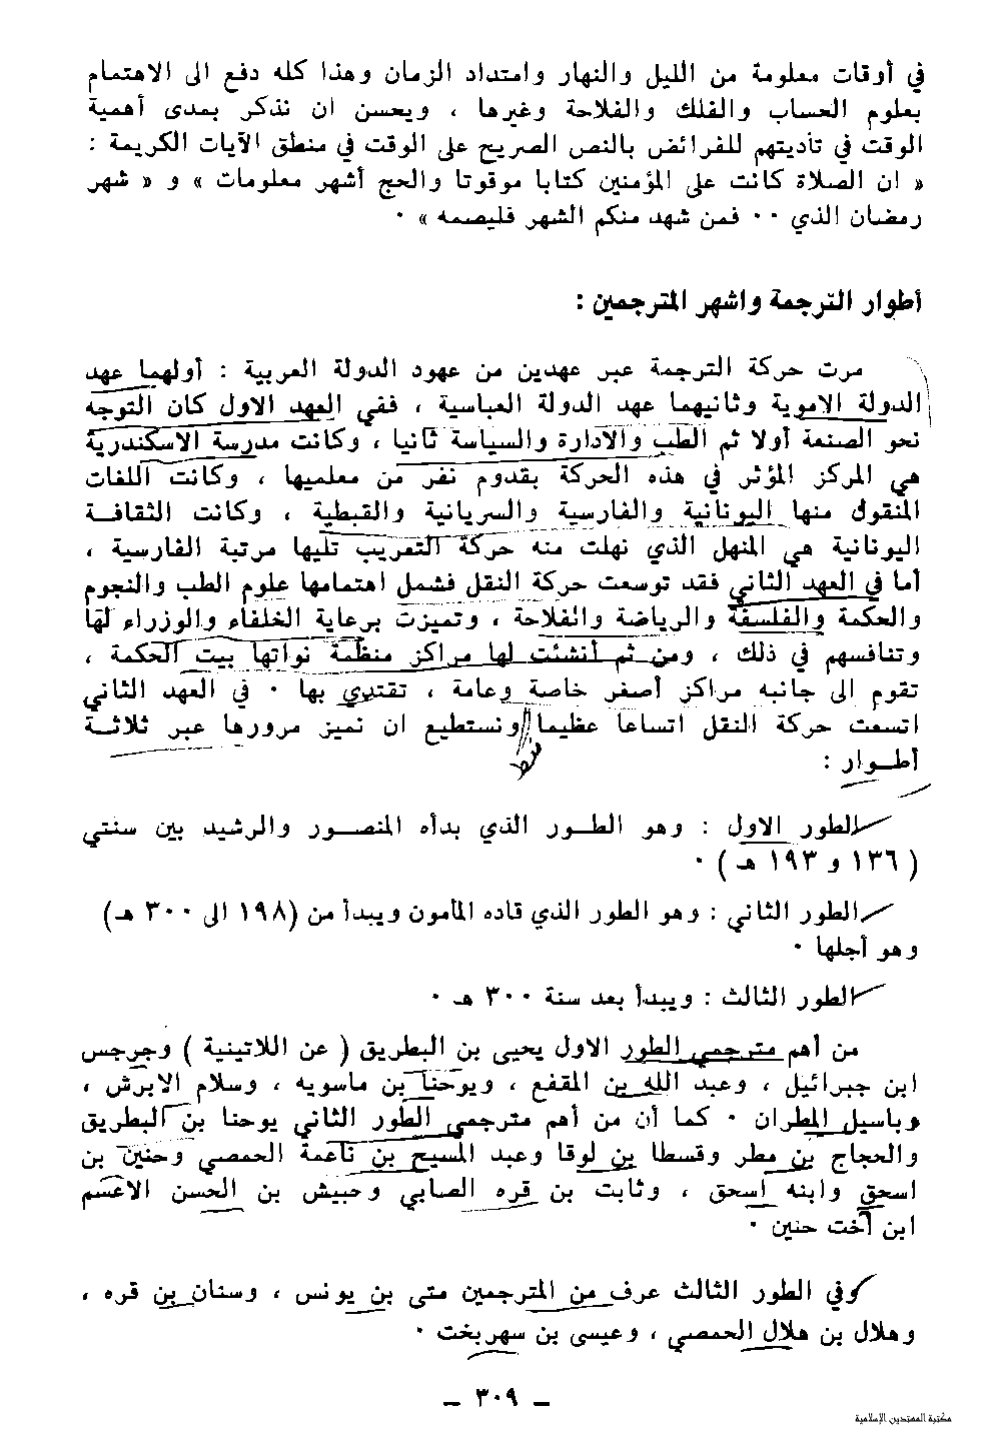 في أوقات معلومة من الليل والنهار وامتداد الزمان وهذا كله دفع الى الاهتمام
بعلوم الحساب والفلك والفلاحة وغيرها ، ويحسن ان نذكر بمدى أهمية
الوقت في تأديتهم للفرائض بالنص الصريح على الوقت في منطق الآيات الكريمة :
« ان الصلاة كانت على المؤمنين كتابا موقوتا والحج أشهر معلومات » و « شهر
رمضان الذي ٠٠ فمن شهد منكم الشهر فليصمه » ٠
أطوار الترجمة واشهر المترجمين :
مرت حركة الترجمة عبر عهدين من عهود الدولة العربية : أولهما عهد
الدولة الاموية وثانيهما عهد الدولة العباسية ، ففي العهد الاول كان التوجه
نحو الصنعة أولا ثم الطب والادارة والسياسة ثانيا ، وكانت مدرسة الاسكندرية
هي المركز المؤثر في هذه الحركة بقدوم نفر من معلميها ، وكانت اللغات
المنقول منها اليونانية والفارسية والسريانية والقبطية ، وكانت الثقافة
اليونانية هي المنهل الذي نهلت منه حركة التعريب تليها مرتبة الفارسية ،
أما في العهد الثاني فقد توسعت حركة النقل فشمل اهتمامها علوم الطب والنجوم
والحكمة والفلسفة والرياضة والفلاحة ، وتميزت برعاية الخلفاء والوزراء لها
وتنافسهم في ذلك ، ومن ثم أنشئت لها مراكز منظمة نواتها بيت الحكمة ،
تقوم الى جانبه مراكز أصغر خاصة وعامة ، تقتدي بها ٠ في العهد الثاني
اتسعت حركة النقل اتساعا عظيما ونستطيع ان نميز مرورها عبر ثلاثة
أطوار :
الطور الاول : وهو الطور الذي بدأه المنصور والرشيد بين سنتي
( ١٣٦ و ١٩٣ هـ ) ٠
الطور الثاني : وهو الطور الذي قاده المأمون ويبدأ من (١٩٨ الى ٣٠٠ هـ)
وهو أجلها ٠
الطور الثالث : ويبدأ بعد سنة ٣٠٠ هـ ٠
من أهم مترجمي الطور الاول يحيى بن البطريق ( عن اللاتينية ) وجرجس
ابن جبرائيل ، وعبد الله بن المقفع ، ويوحنا بن ماسويه ، وسلام الابرش ،
وباسيل المطران ٠ كما أن من أهم مترجمي الطور الثاني يوحنا بن البطريق
والحجاج بن مطر وقسطا بن لوقا وعبد المسيح بن ناعمة الحمصي وحنين بن
اسحق وابنه اسحق ، وثابت بن قره الصابي وحبيش بن الحسن الاعسم
ابن أخت حنين ٠
وفي الطور الثالث عرف من المترجمين متى بن يونس ، وسنان بن قره ،
وهلال بن هلال الحمصي ، وعيسى بن سهربخت ٠
ـ ٣٠٩ ـ
مكتبة المهتدين الإسلامية